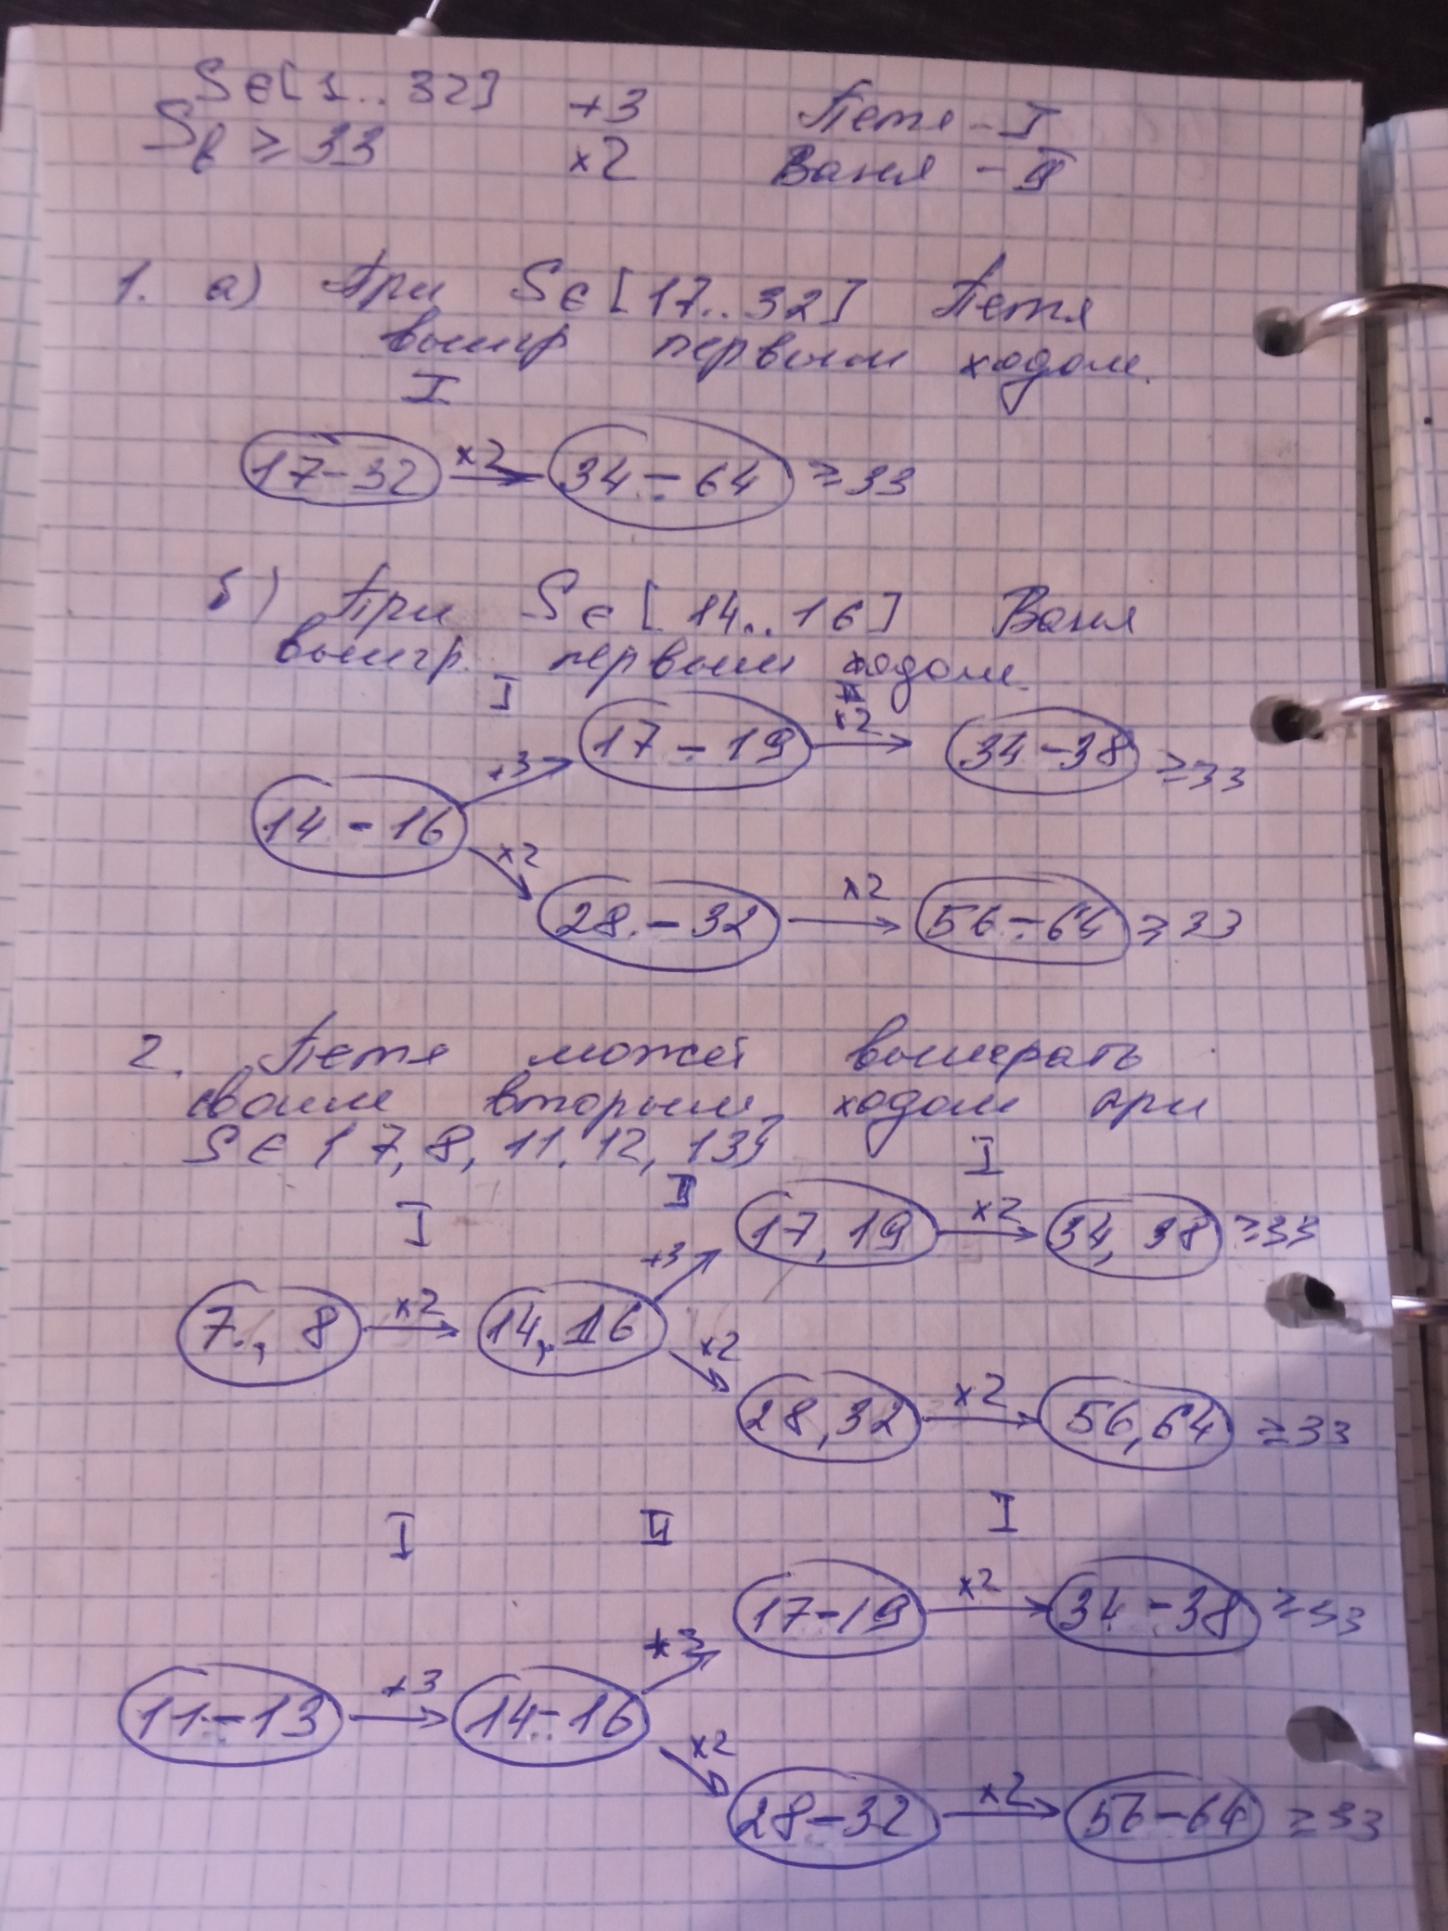 S∈[1..32] +3 Петя - I
Sв ≥ 33 ×2 Ваня - II
1. а) При S∈[17..32] Петя
выигр первым ходом.
I
17-32 ×2 34-64 ≥33
б) При S∈[14..16] Ваня
выигр. первым ходом.
I II
+3 17-19 ×2 34-38 ≥33
14-16
×2 28-32 ×2 56-64 ≥33
2. Петя может выиграть
своим вторым ходом при
S∈{7, 8, 11, 12, 13}
I II I
+3 17, 19 ×2 34, 38 ≥33
7, 8 ×2 14, 16
×2 28, 32 ×2 56, 64 ≥33
I II I
+3 17-19 ×2 34-38 ≥33
11-13 +3 14-16
×2 28-32 ×2 56-64 ≥33